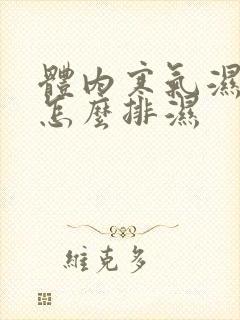 體內寒氣濕
怎麼排濕
維克多